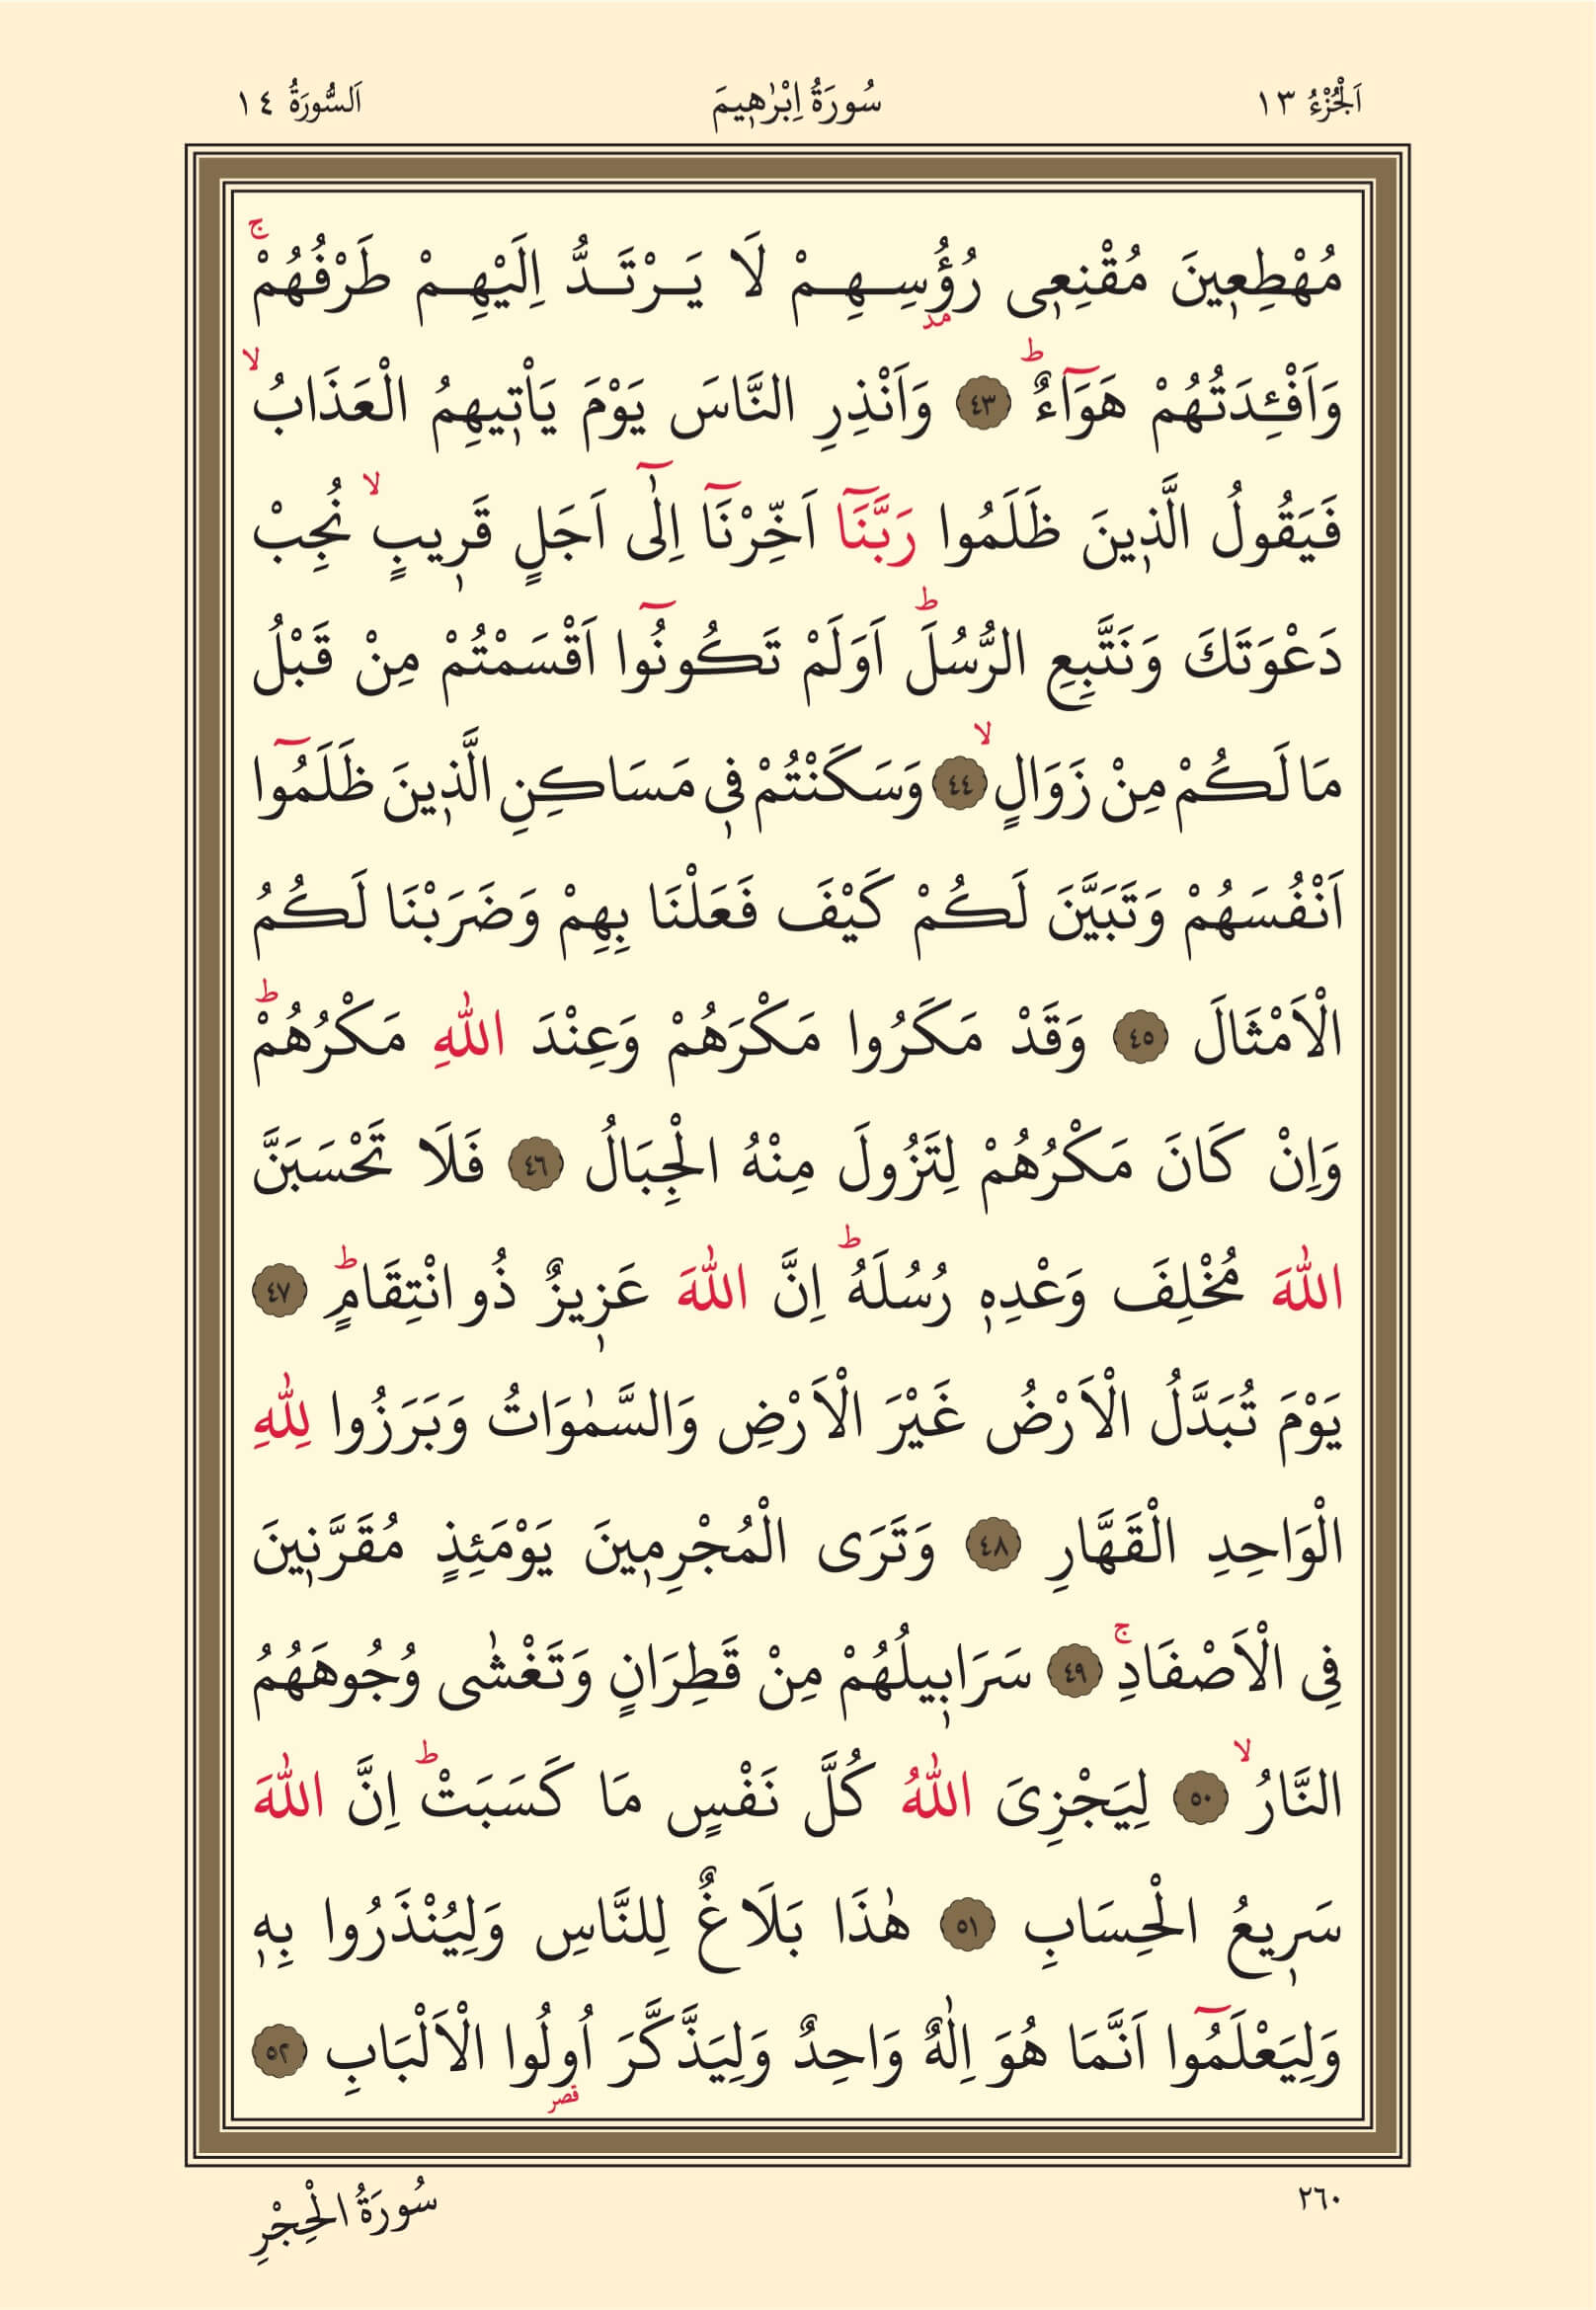 اَلْجُزْءُ ١٣ سُورَةُ اِبْرٰهٖيمَ اَلسُّورَةُ ١٤
مُهْطِعٖينَ مُقْنِعٖى رُؤُ۫سِهِمْ لَا يَرْتَدُّ اِلَيْهِمْ طَرْفُهُمْۚ
مد
وَاَفْـِٔدَتُهُمْ هَوَٓاءٌؕ ﴿٤٣﴾ وَاَنْذِرِ النَّاسَ يَوْمَ يَاْتٖيهِمُ الْعَذَابُۙ
فَيَقُولُ الَّذٖينَ ظَلَمُوا رَبَّنَٓا اَخِّرْنَٓا اِلٰٓى اَجَلٍ قَرٖيبٍۙ نُجِبْ
دَعْوَتَكَ وَنَتَّبِعِ الرُّسُلَؕ اَوَلَمْ تَكُونُٓوا اَقْسَمْتُمْ مِنْ قَبْلُ
مَا لَكُمْ مِنْ زَوَالٍۙ ﴿٤٤﴾ وَسَكَنْتُمْ فٖى مَسَاكِنِ الَّذٖينَ ظَلَمُٓوا
اَنْفُسَهُمْ وَتَبَيَّنَ لَكُمْ كَيْفَ فَعَلْنَا بِهِمْ وَضَرَبْنَا لَكُمُ
الْاَمْثَالَ ﴿٤٥﴾ وَقَدْ مَكَرُوا مَكْرَهُمْ وَعِنْدَ اللّٰهِ مَكْرُهُمْؕ
وَاِنْ كَانَ مَكْرُهُمْ لِتَزُولَ مِنْهُ الْجِبَالُ ﴿٤٦﴾ فَلَا تَحْسَبَنَّ
اللّٰهَ مُخْلِفَ وَعْدِهٖ رُسُلَهُؕ اِنَّ اللّٰهَ عَزٖيزٌ ذُو انْتِقَامٍؕ ﴿٤٧﴾
يَوْمَ تُبَدَّلُ الْاَرْضُ غَيْرَ الْاَرْضِ وَالسَّمٰوَاتُ وَبَرَزُوا لِلّٰهِ
الْوَاحِدِ الْقَهَّارِ ﴿٤٨﴾ وَتَرَى الْمُجْرِمٖينَ يَوْمَئِذٍ مُقَرَّنٖينَ
فِى الْاَصْفَادِۚ ﴿٤٩﴾ سَرَابٖيلُهُمْ مِنْ قَطِرَانٍ وَتَغْشٰى وُجُوهَهُمُ
النَّارُۙ ﴿٥٠﴾ لِيَجْزِىَ اللّٰهُ كُلَّ نَفْسٍ مَا كَسَبَتْؕ اِنَّ اللّٰهَ
سَرٖيعُ الْحِسَابِ ﴿٥١﴾ هٰذَا بَلَاغٌ لِلنَّاسِ وَلِيُنْذَرُوا بِهٖ
وَلِيَعْلَمُٓوا اَنَّمَا هُوَ اِلٰهٌ وَاحِدٌ وَلِيَذَّكَّرَ اُولُوا الْاَلْبَابِ ﴿٥٢﴾
قصر
٢٦٠ سُورَةُ الْحِجْرِ